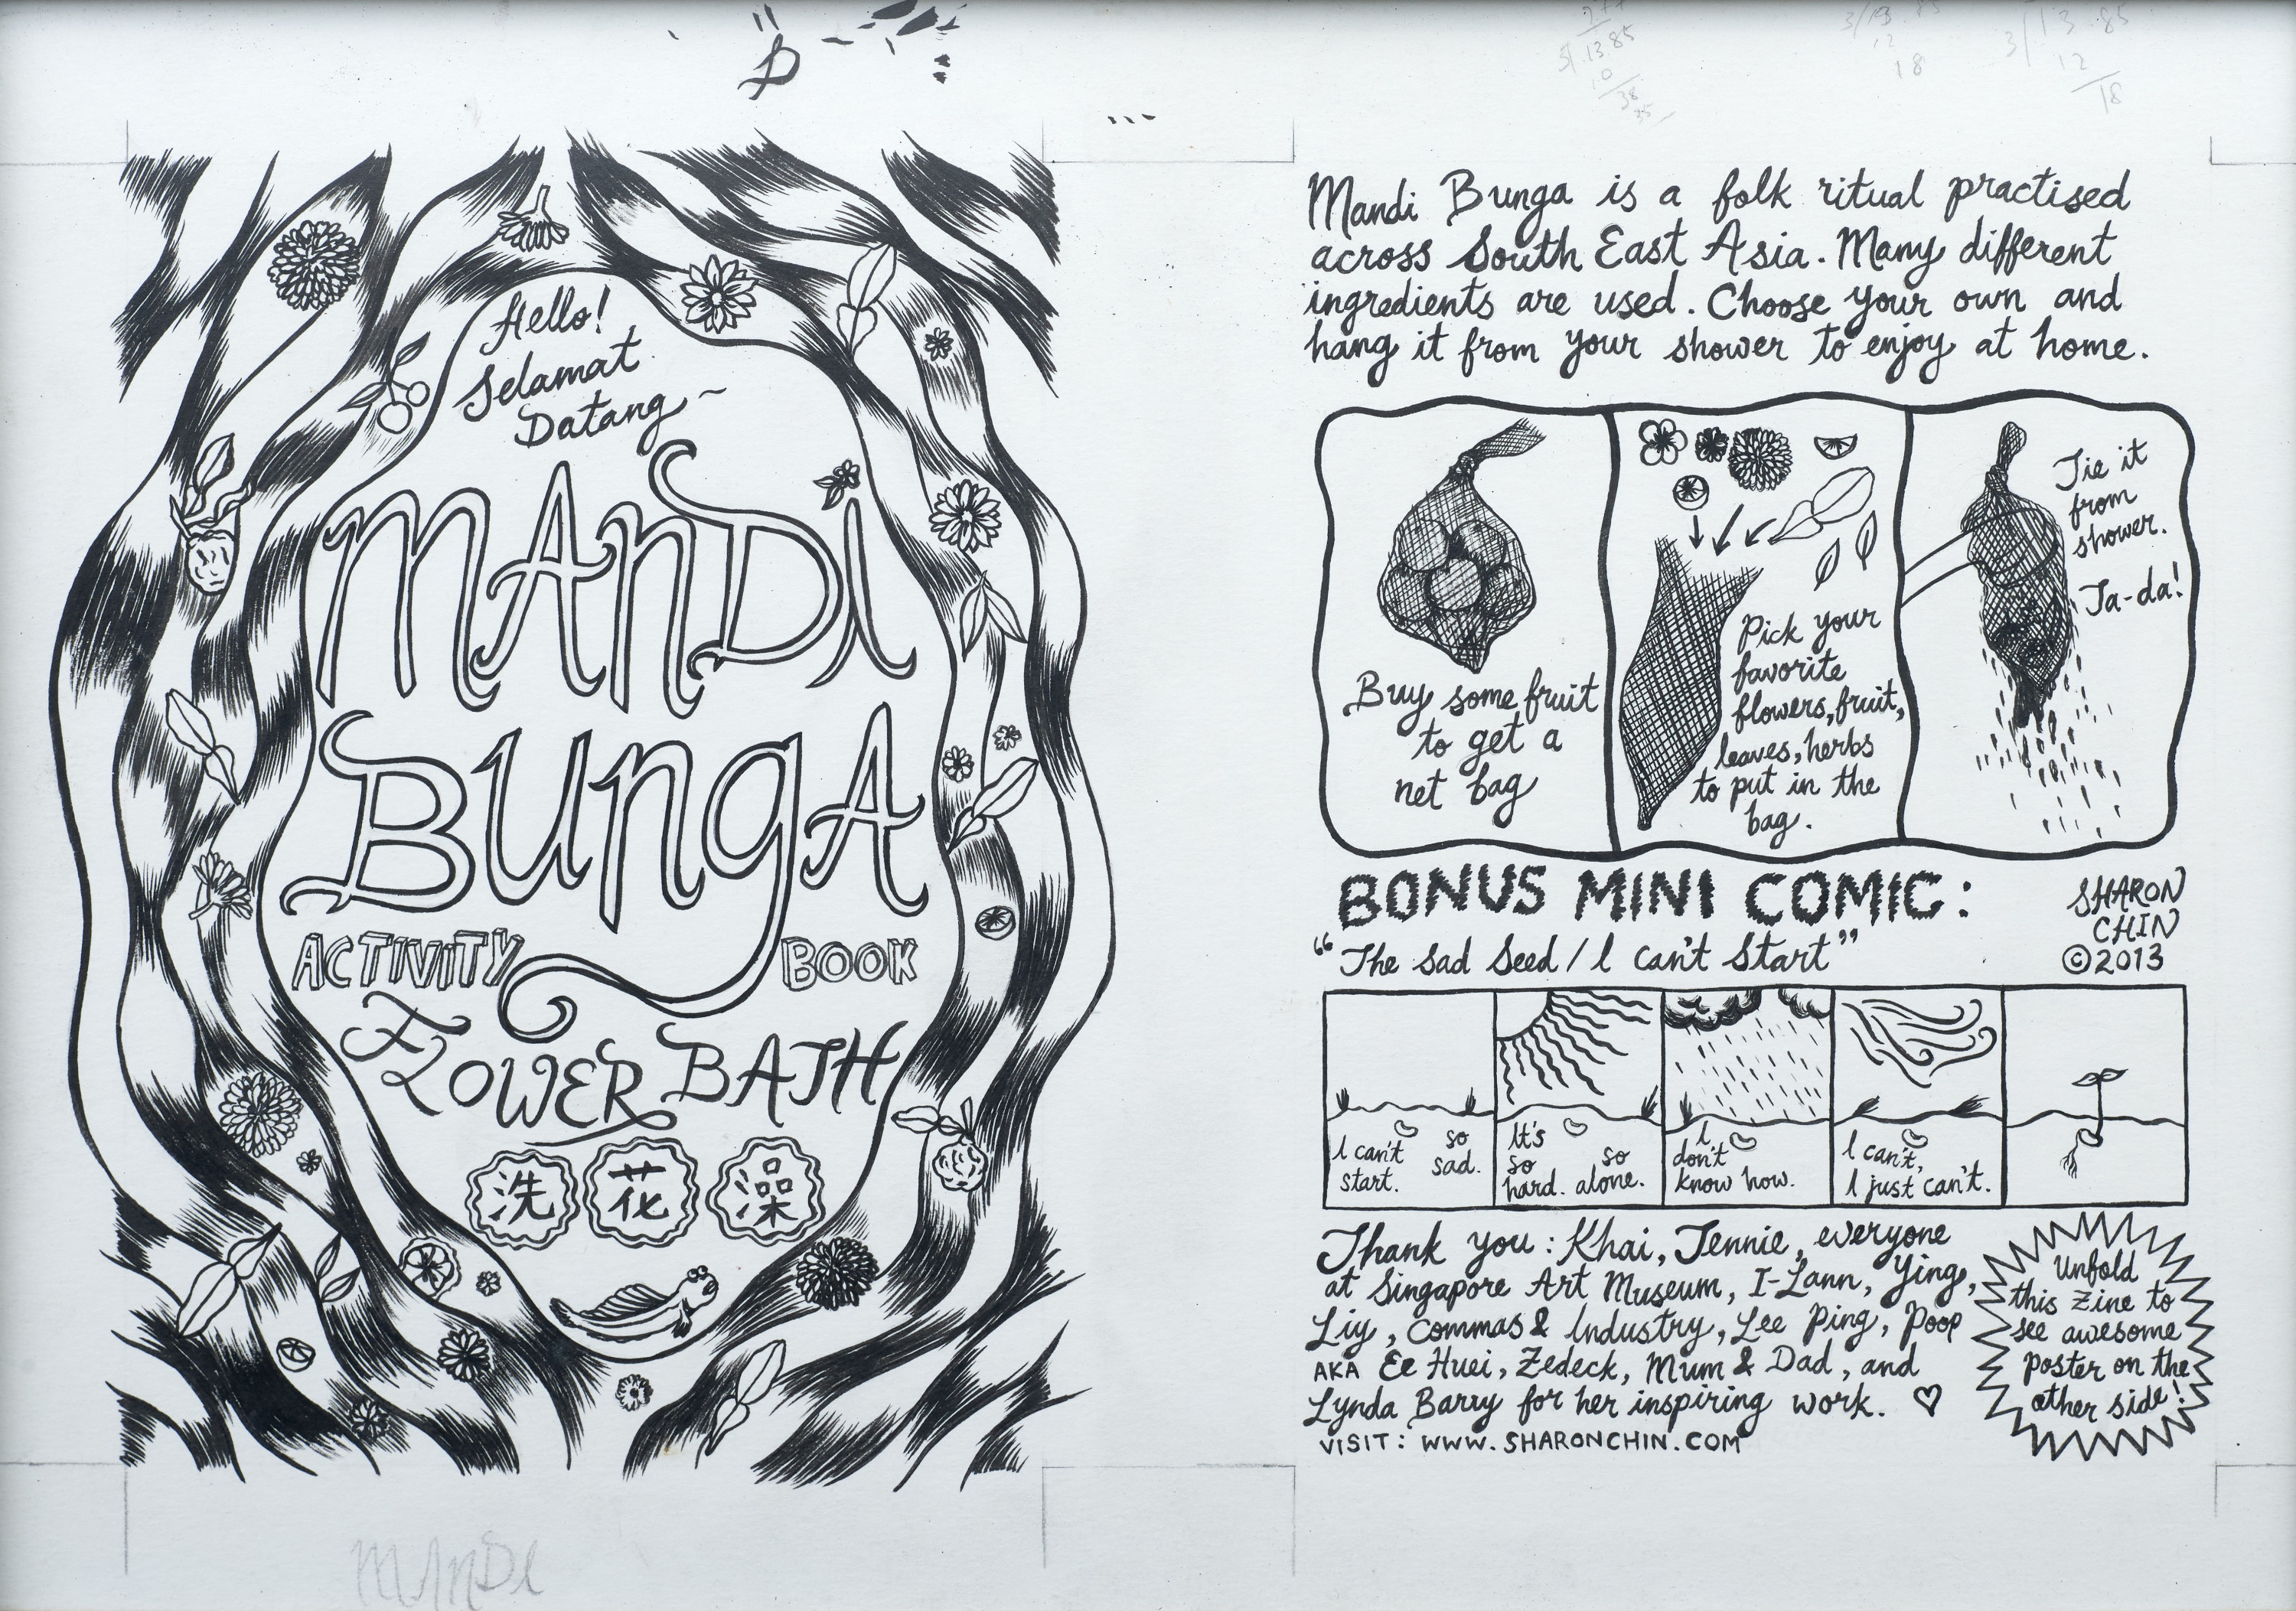 Hello!
Selamat
Datang~
MANDI
BUNGA
ACTIVITY BOOK
FLOWER BATH
洗 花 澡
MANDI
Mandi Bunga is a folk ritual practised
across South East Asia. Many different
ingredients are used. Choose your own and
hang it from your shower to enjoy at home.
Buy some fruit
to get a
net bag
Pick your
favorite
flowers, fruit,
leaves, herbs
to put in the
bag.
Tie it
from
shower.
Ta-da!
BONUS MINI COMIC:
"The Sad Seed / I Can't Start"
SHARON
CHIN
©2013
I can't
start.
so
sad.
It's
so
hard.
so
alone.
I
don't
know how.
I can't,
I just can't.
Thank you: Khai, Jennie, everyone
at Singapore Art Museum, I-Lann, Ying,
Liy, Commas & Industry, Lee Ping, Poop
AKA Ee Huei, Zedeck, Mum & Dad, and
Lynda Barry for her inspiring work. ♡
VISIT: WWW.SHARONCHIN.COM
Unfold
this zine to
see awesome
poster on the
other side!